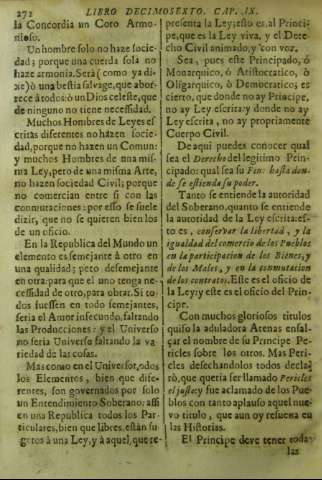 272 LIBRO DECIMOSEXTO. CAP. IX.
la Concordia un Coro Armo-
nioso.
Un hombre solo no haze socie-
dad; porque una cuerda sola no
haze armonia. Serà (como ya di-
xe) ò una bestia salvage, que abor-
rece à todos: ò un Dios celeste, que
de ninguno no tiene necessidad.
Muchos Hombres de Leyes es-
critas diferentes no házen socie-
dad, porque no hazen un Comun:
y muchos Hombres de una mis-
ma Ley, pero de una misma Arte,
no hazen sociedad Civil; porque
no comercian entre si con las
commutaciones: por esso se suele
dizir, que no se quieren bien los
de un oficio.
En la Republica del Mundo un
elemento es semejante à otro en
una qualidad; pero desemejante
en otra: para que el uno tenga ne-
cessidad de otro, para obrar. Si to-
dos fuessen en todo semejantes,
seria el Amor infecundo, faltando
las Producciones: y el Universo
no seria Universo faltando la va-
riedad de las cosas.
Mas como en el Universo, todos
los Elementos, bien que dife-
rentes, son governados por solo
un Entendimiento Soberano: assi
en una Republica todos los Par-
ticulares, bien que libres, están su-
getos à una Ley, y à aquel, que re-
presenta la Ley; esto es, al Princi-
pe, que es la Ley viva, y el Dere-
cho Civil animado, y con voz.
Sea, pues este Principado, ò
Monarquico, ò Aristocratico, ò
Oligarquico, ò Democratico; es
cierto, que donde no ay Principe,
no ay Ley escrita: y donde no ay
Ley escrita, no ay propriamente
Cuerpo Civil.
De aqui puedes conocer qual
sea el Derecho del legitimo Prin-
cipado: qual sea su Fin: hasta don-
de se estienda su poder.
Tanto se entiende la autoridad
del Soberano, quanto se entiende
la autoridad de la Ley escrita: es-
to es, conservar la libertad, y la
igualdad del comercio de los Pueblos
en la participacion de los Bienes, y
de los Males, y en la conmutacion
de los contratos. Este es el oficio de
la Ley: y este es el oficio del Prin-
cipe.
Con muchos gloriosos titulos
quiso la aduladora Atenas ensal-
çar el nombre de su Principe Pe-
ricles sobre los otros. Mas Peri-
cles desechandolos todos decla-
rò, que queria ser llamado Pericles
el justo: y fue aclamado de los Pue-
blos con tanto aplauso aquel nue-
vo titulo, que aun oy resuena en
las Historias.
El Principe deve tener todas
las